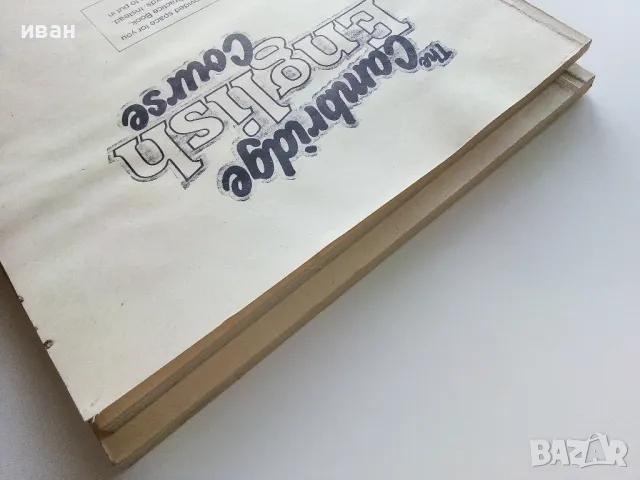 иван
The Cambridge
English
Course
corded space for you
to put in
ractice Book.
ards. Instead
BAZAR